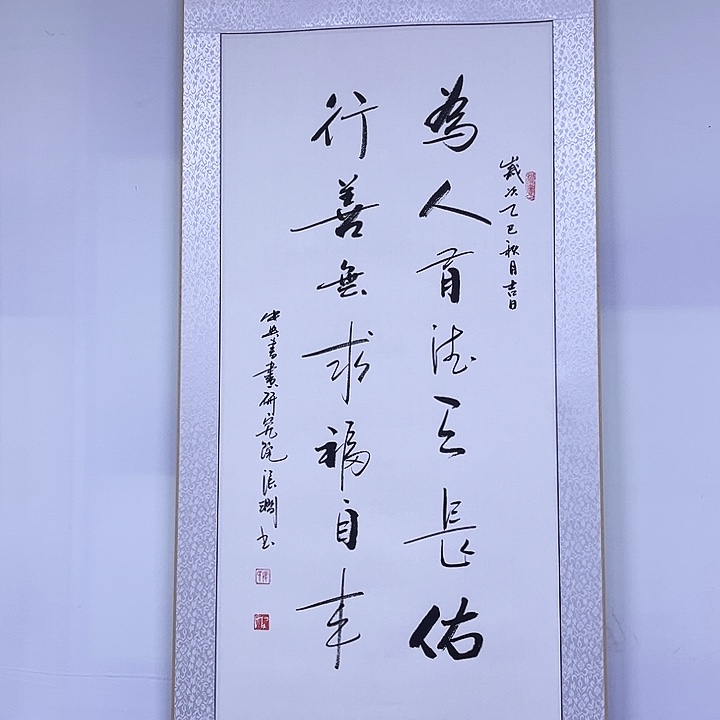 歲次乙巳秋月吉日
為人有德天長佑
行善無求福自来
書畫研究院張书